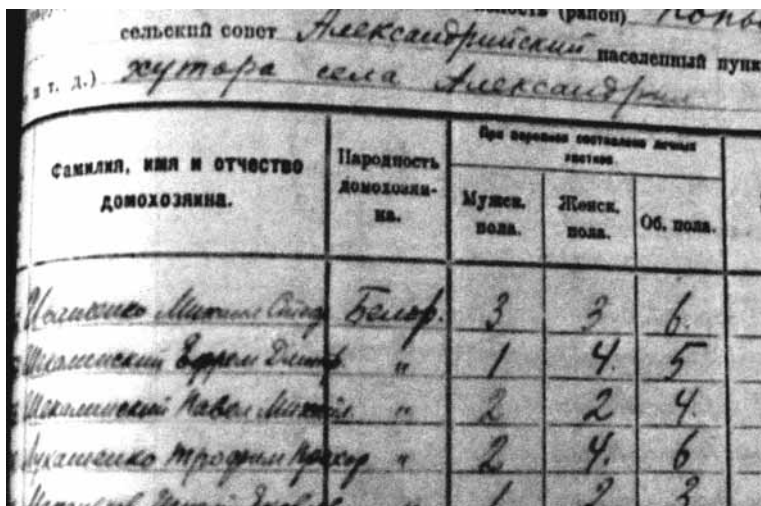 (район)
сельский совет Александрийский населенный пунк
и т. д.) хутора села Александрия
Фамилия, имя и отчество домохозяина.
Народность домохозяина.
При переписи составлено личных листков.
Мужск. пола.
Женск. пола.
Об. пола.
Иваненко Михаил Стеф Белор. 3 3 6.
Шекаминский Ефрем Дмитр. " 1 4. 5
Шекаминский Павел Михайл. " 2 2 4.
Лукашенко Трофим Прохор " 2 4. 6
1 2 3